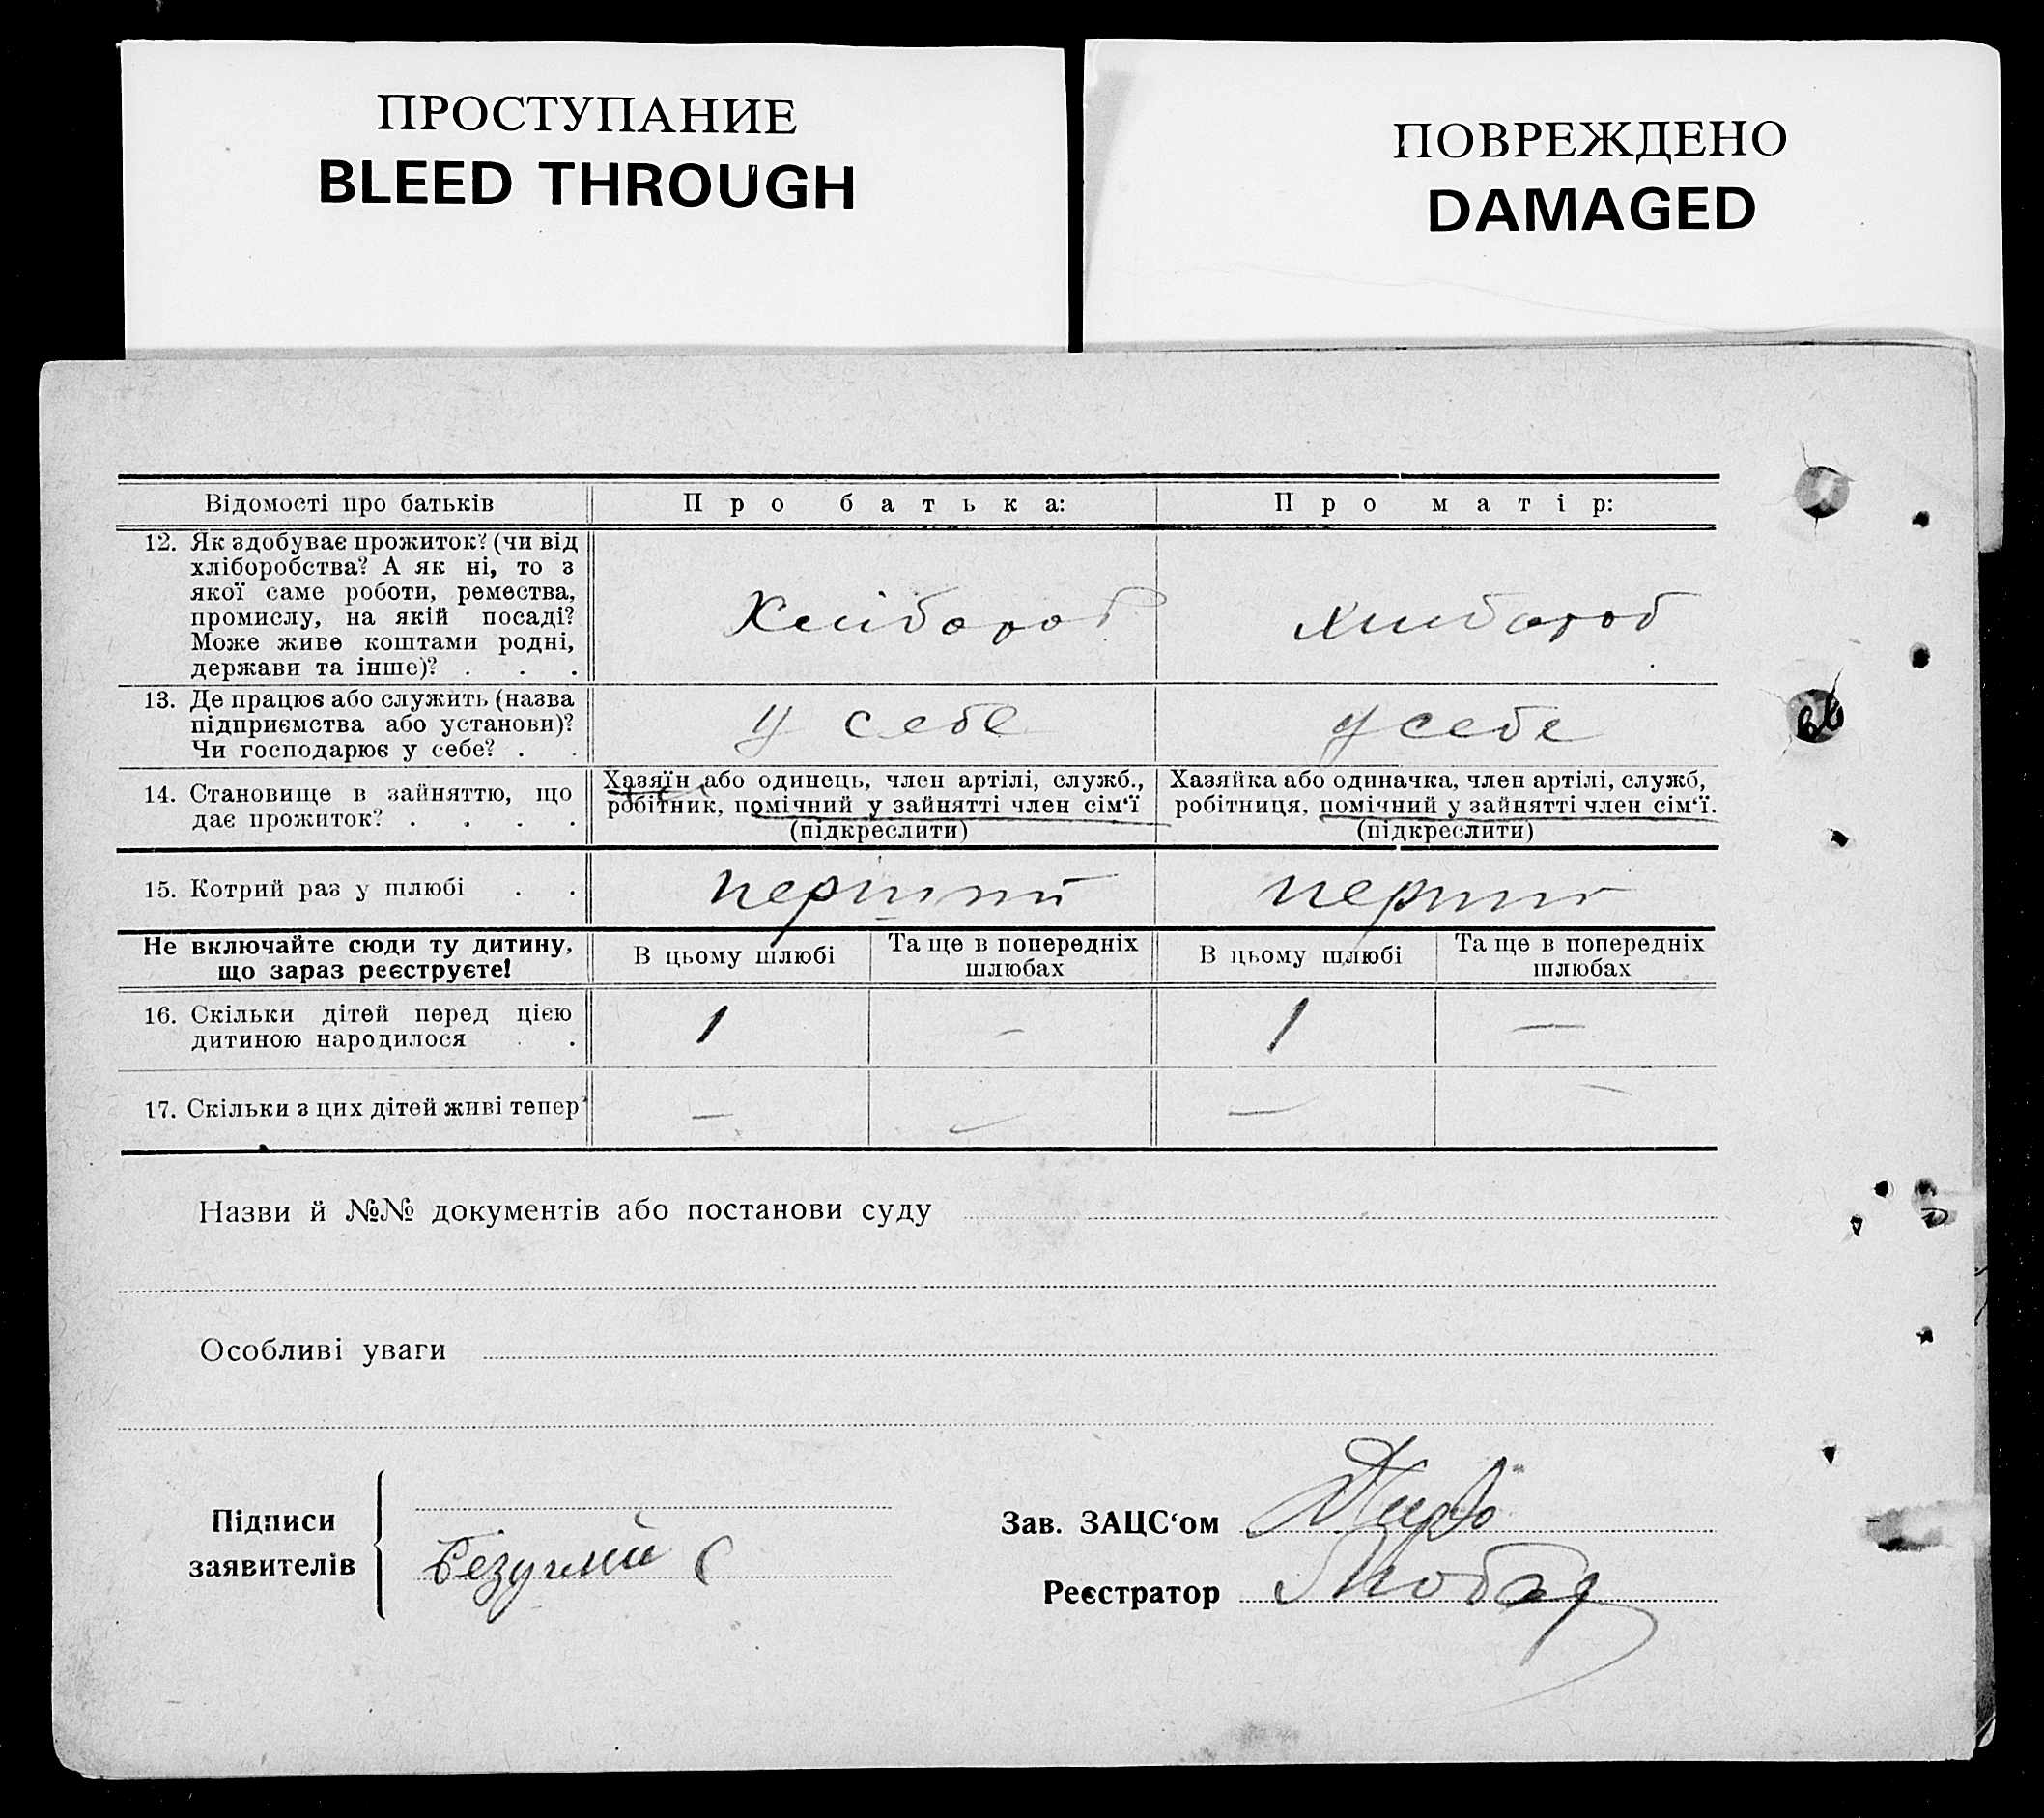 ПРОСТУПАНИЕ
BLEED THROUGH
ПОВРЕЖДЕНО
DAMAGED
Відомості про батьків
Про батька:
Про матір:
12. Як здобуває прожиток? (чи від
хліборобства? А як ні, то з
якої саме роботи, ремества,
промислу, на якій посаді?
Може живе коштами родні,
держави та інше)? . . .
Хлібороб
Хлибороб
13. Де працює або служить (назва
підприємства або установи)?
Чи господарює у себе? . .
У себе
У себе
14. Становище в зайняттю, що
дає прожиток? . . . .
Хазяїн або одинець, член артілі, служб.,
робітник, помічний у зайнятті член сім'ї
(підкреслити)
Хазяйка або одиначка, член артілі, служб,
робітниця, помічний у зайнятті член сім'ї.
(підкреслити)
15. Котрий раз у шлюбі . .
перший
перший
Не включайте сюди ту дитину,
що зараз реєструєте!
В цьому шлюбі
Та ще в попередніх
шлюбах
В цьому шлюбі
Та ще в попередніх
шлюбах
16. Скільки дітей перед цією
дитиною народилося . .
1
-
1
—
17. Скільки з цих дітей живі тепер
—
—
—
—
Назви й №№ документів або постанови суду
Особливі уваги
Підписи
заявителів
Безуглий С
Зав. ЗАЦС'ом
Реєстратор